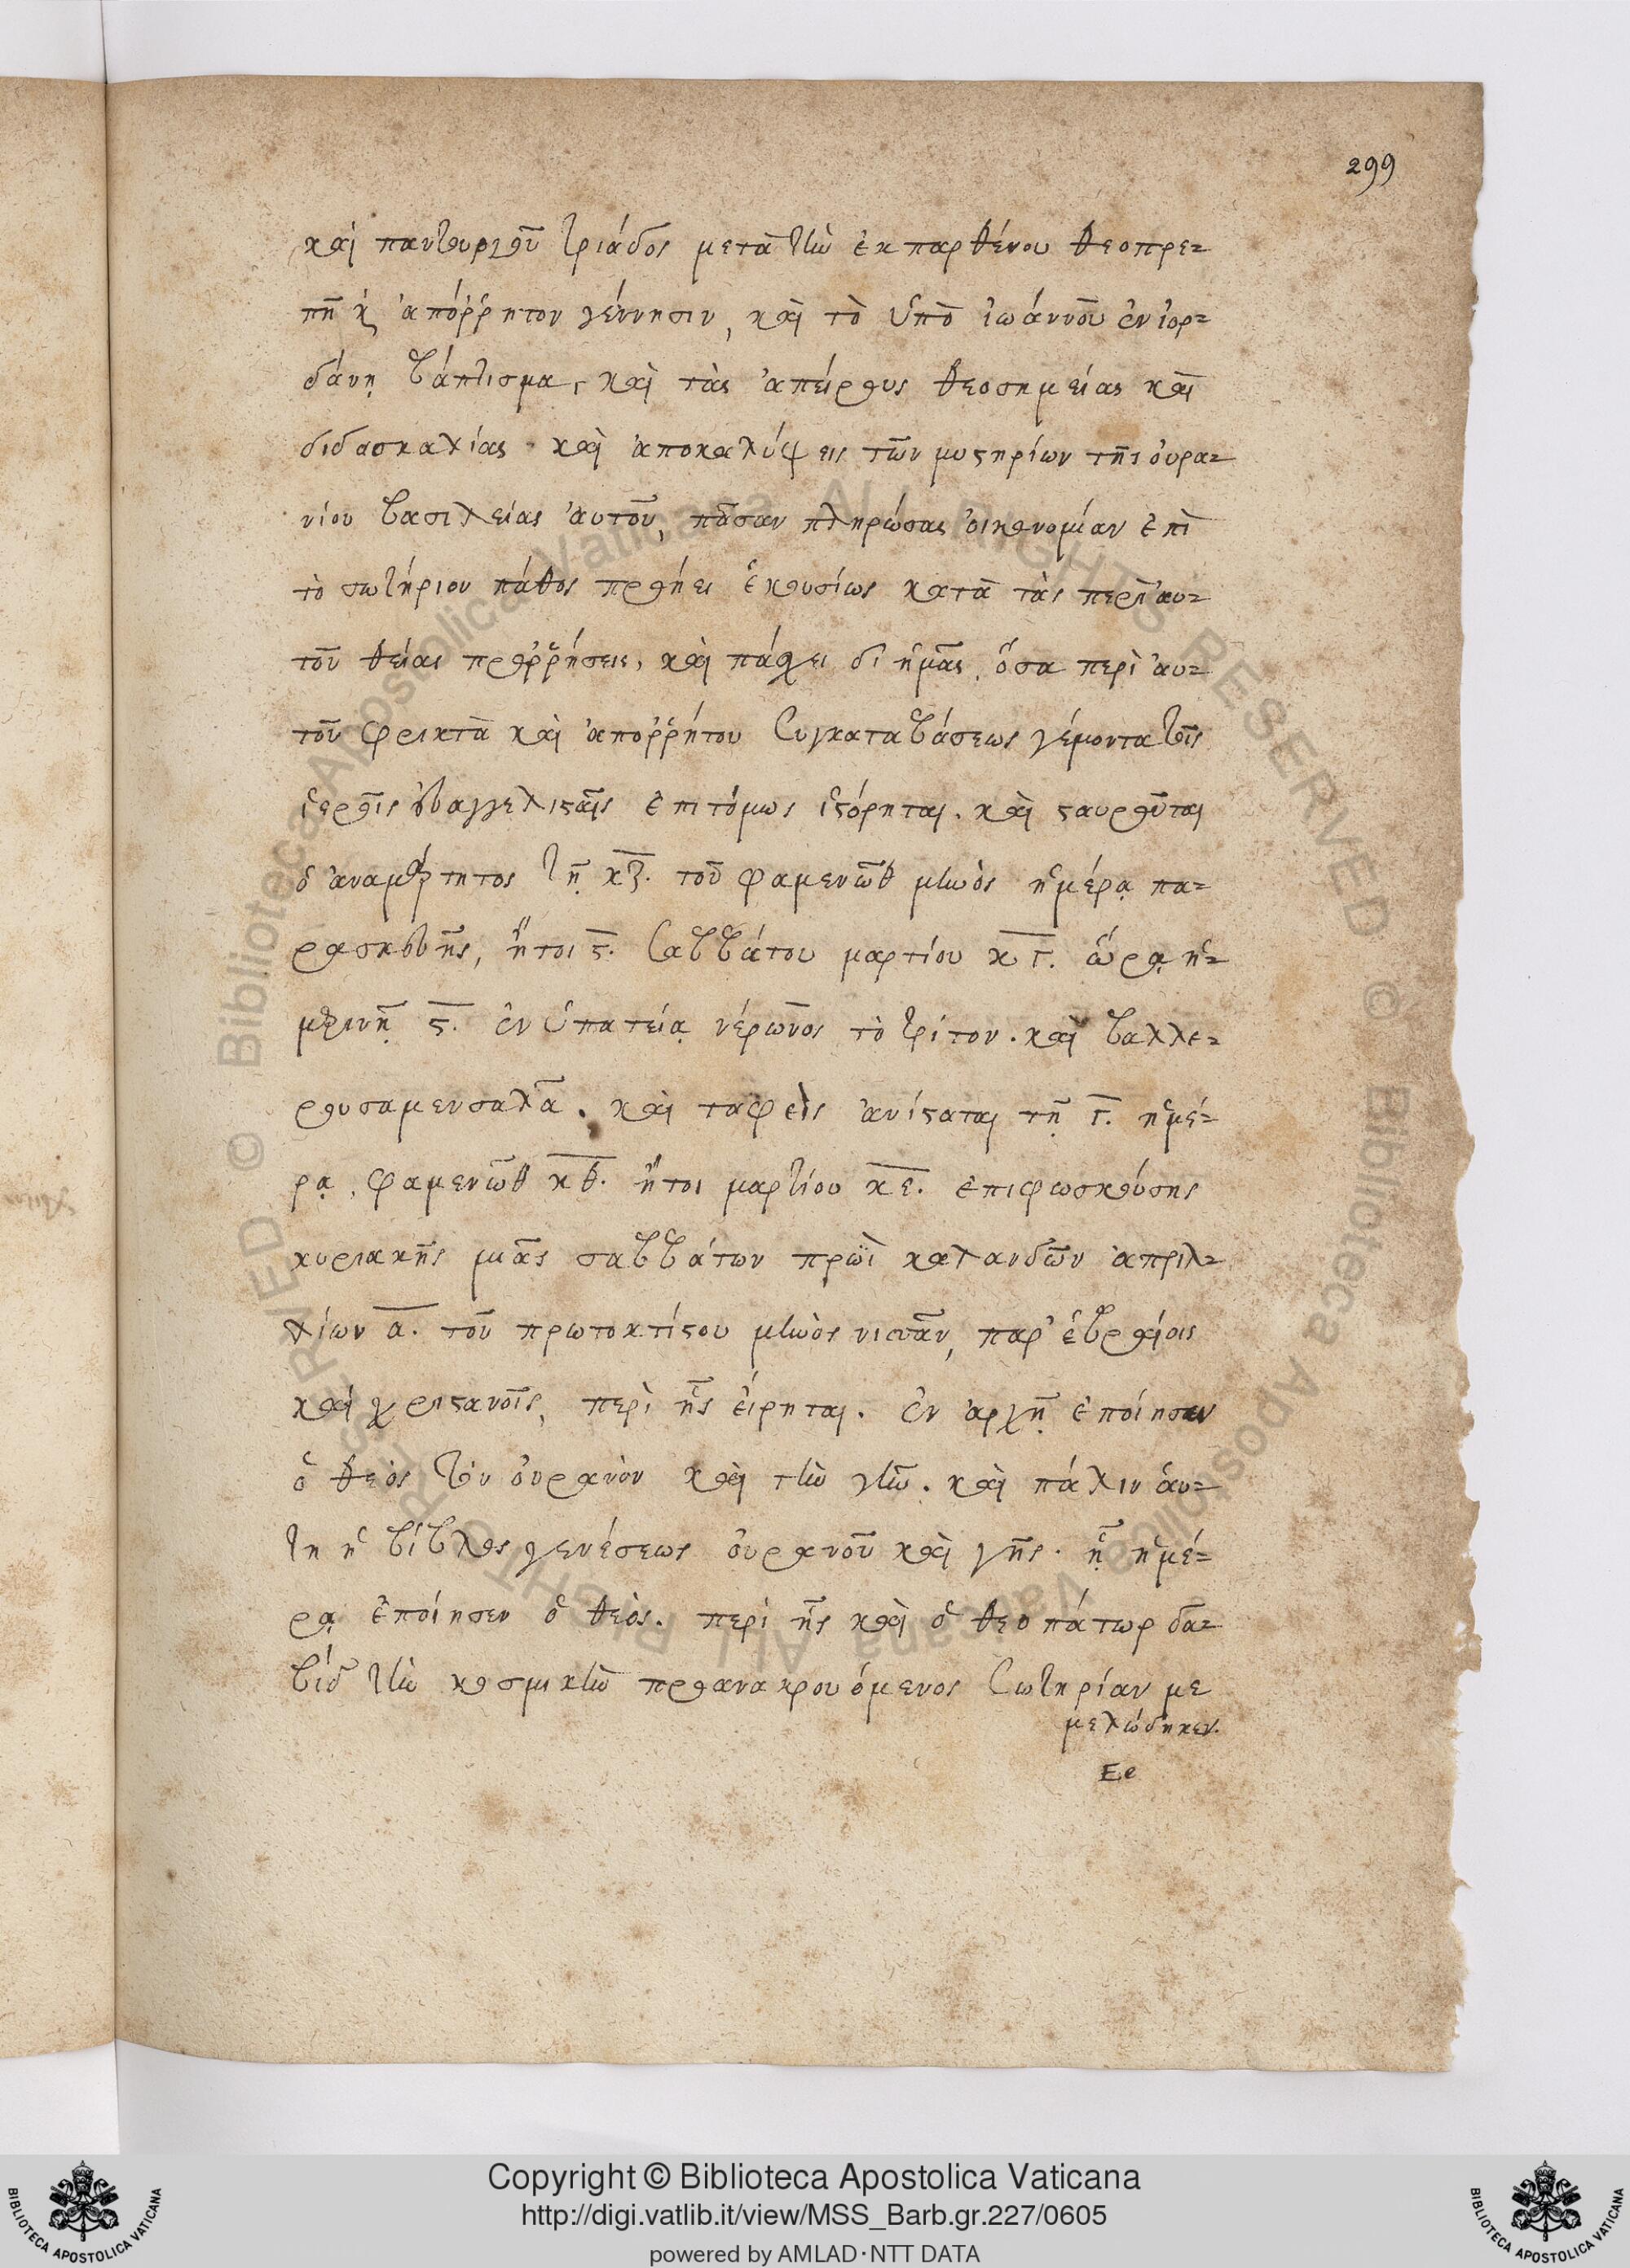 299
καὶ παντουργοῦ τριάδος μετὰ τὴν ἐκ παρθένου θεοπρε-
πῆ κ̀ ἀπόῤῥητον γέννησιν, καὶ τὸ ὑπὸ ἰωάννου ἐν ἰορ-
δάνῃ βάπτισμα, καὶ τὰς ἀπείρους θεοσημείας καὶ
διδασκαλίας καὶ ἀποκαλύψεις τῶν μυστηρίων τῆς οὐρα-
νίου βασιλείας αὐτοῦ, πᾶσαν πληρώσας οἰκονομίαν ἐπὶ
τὸ σωτήριον πάθος προήει ἑκουσίως κατὰ τὰς περὶ αὐ-
τοῦ θείας προῤῥήσεις, καὶ πάσχει δι ἡμᾶς, ὅσα περὶ αὐ-
τοῦ φρικτὰ καὶ ἀποῤῥήτου συγκαταβάσεως γέμοντα τοῖς
ἱεροῖς εὐαγγελισταῖς ἐπιτόμως ἱστόρηται. καὶ σταυροῦται
ὁ ἀναμάρτητος τῇ κζ. τοῦ φαμενὼθ μηνὸς ἡμέρᾳ πα-
ρασκευῆς, ἤτοι ϛ. σαββάτου μαρτίου κγ. ὥρᾳ ἡ-
μερινῇ ϛ. ἐν ὑπατείᾳ νέρωνος τὸ τρίτον. καὶ βαλλε-
ρουσαμενσαλᾶ. καὶ ταφεὶς ἀνίσταται τῇ γ. ἡμέ-
ρᾳ, φαμενὼθ κθ. ἤτοι μαρτίου κε. ἐπιφωσκούσης
κυριακῆς μιᾶς σαββάτων πρωῒ καλανδῶν ἀπριλ-
λίων α. τοῦ πρωτοκτίστου μηνὸς νισὰν, παρ' ἑβραίοις
καὶ χριστανοῖς, περὶ ἧς εἴρηται. ἐν ἀρχῇ ἐποίησεν
ὁ θεὸς τὸν οὐρανὸν καὶ τὴν γῆν. καὶ πάλιν αὕ-
τη ἡ βίβλος γενέσεως οὐρανοῦ καὶ γῆς. ᾗ ἡμέ-
ρᾳ ἐποίησεν ὁ θεὸς. περὶ ἧς καὶ ὁ θεοπάτωρ δα-
βὶδ τὴν κοσμικὴν προανακρουόμενος σωτηρίαν με
μελώδηκεν.
Ee
Copyright © Biblioteca Apostolica Vaticana
http://digi.vatlib.it/view/MSS_Barb.gr.227/0605
powered by AMLAD·NTT DATA
BIBLIOTECA APOSTOLICA VATICANA
BIBLIOTECA APOSTOLICA VATICANA
© Biblioteca Apostolica Vaticana ALL RIGHTS RESERVED
© Biblioteca Apostolica Vaticana ALL RIGHTS RESERVED